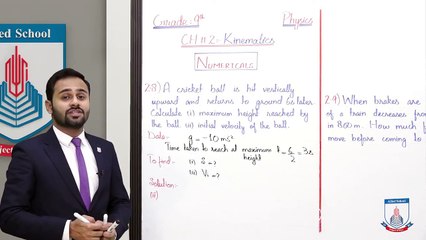 ied School
Grade:- 9th
Physics
CH # 2- Kinematics
NUMERICALS
2.8) A cricket ball is hit vertically
upward and returns to ground 6s later.
Calculate (i) maximum height reached by
the ball (ii) initial velocity of the ball.
Data:-
g = -10 ms⁻²
Time taken to reach at maximum height t = 6/2 = 3s
To find:-
(i) S = ?
(ii) Vi = ?
Solution:-
(ii)
2.9) When brakes are
of a train decreases from
in 800m. How much f
move before coming to